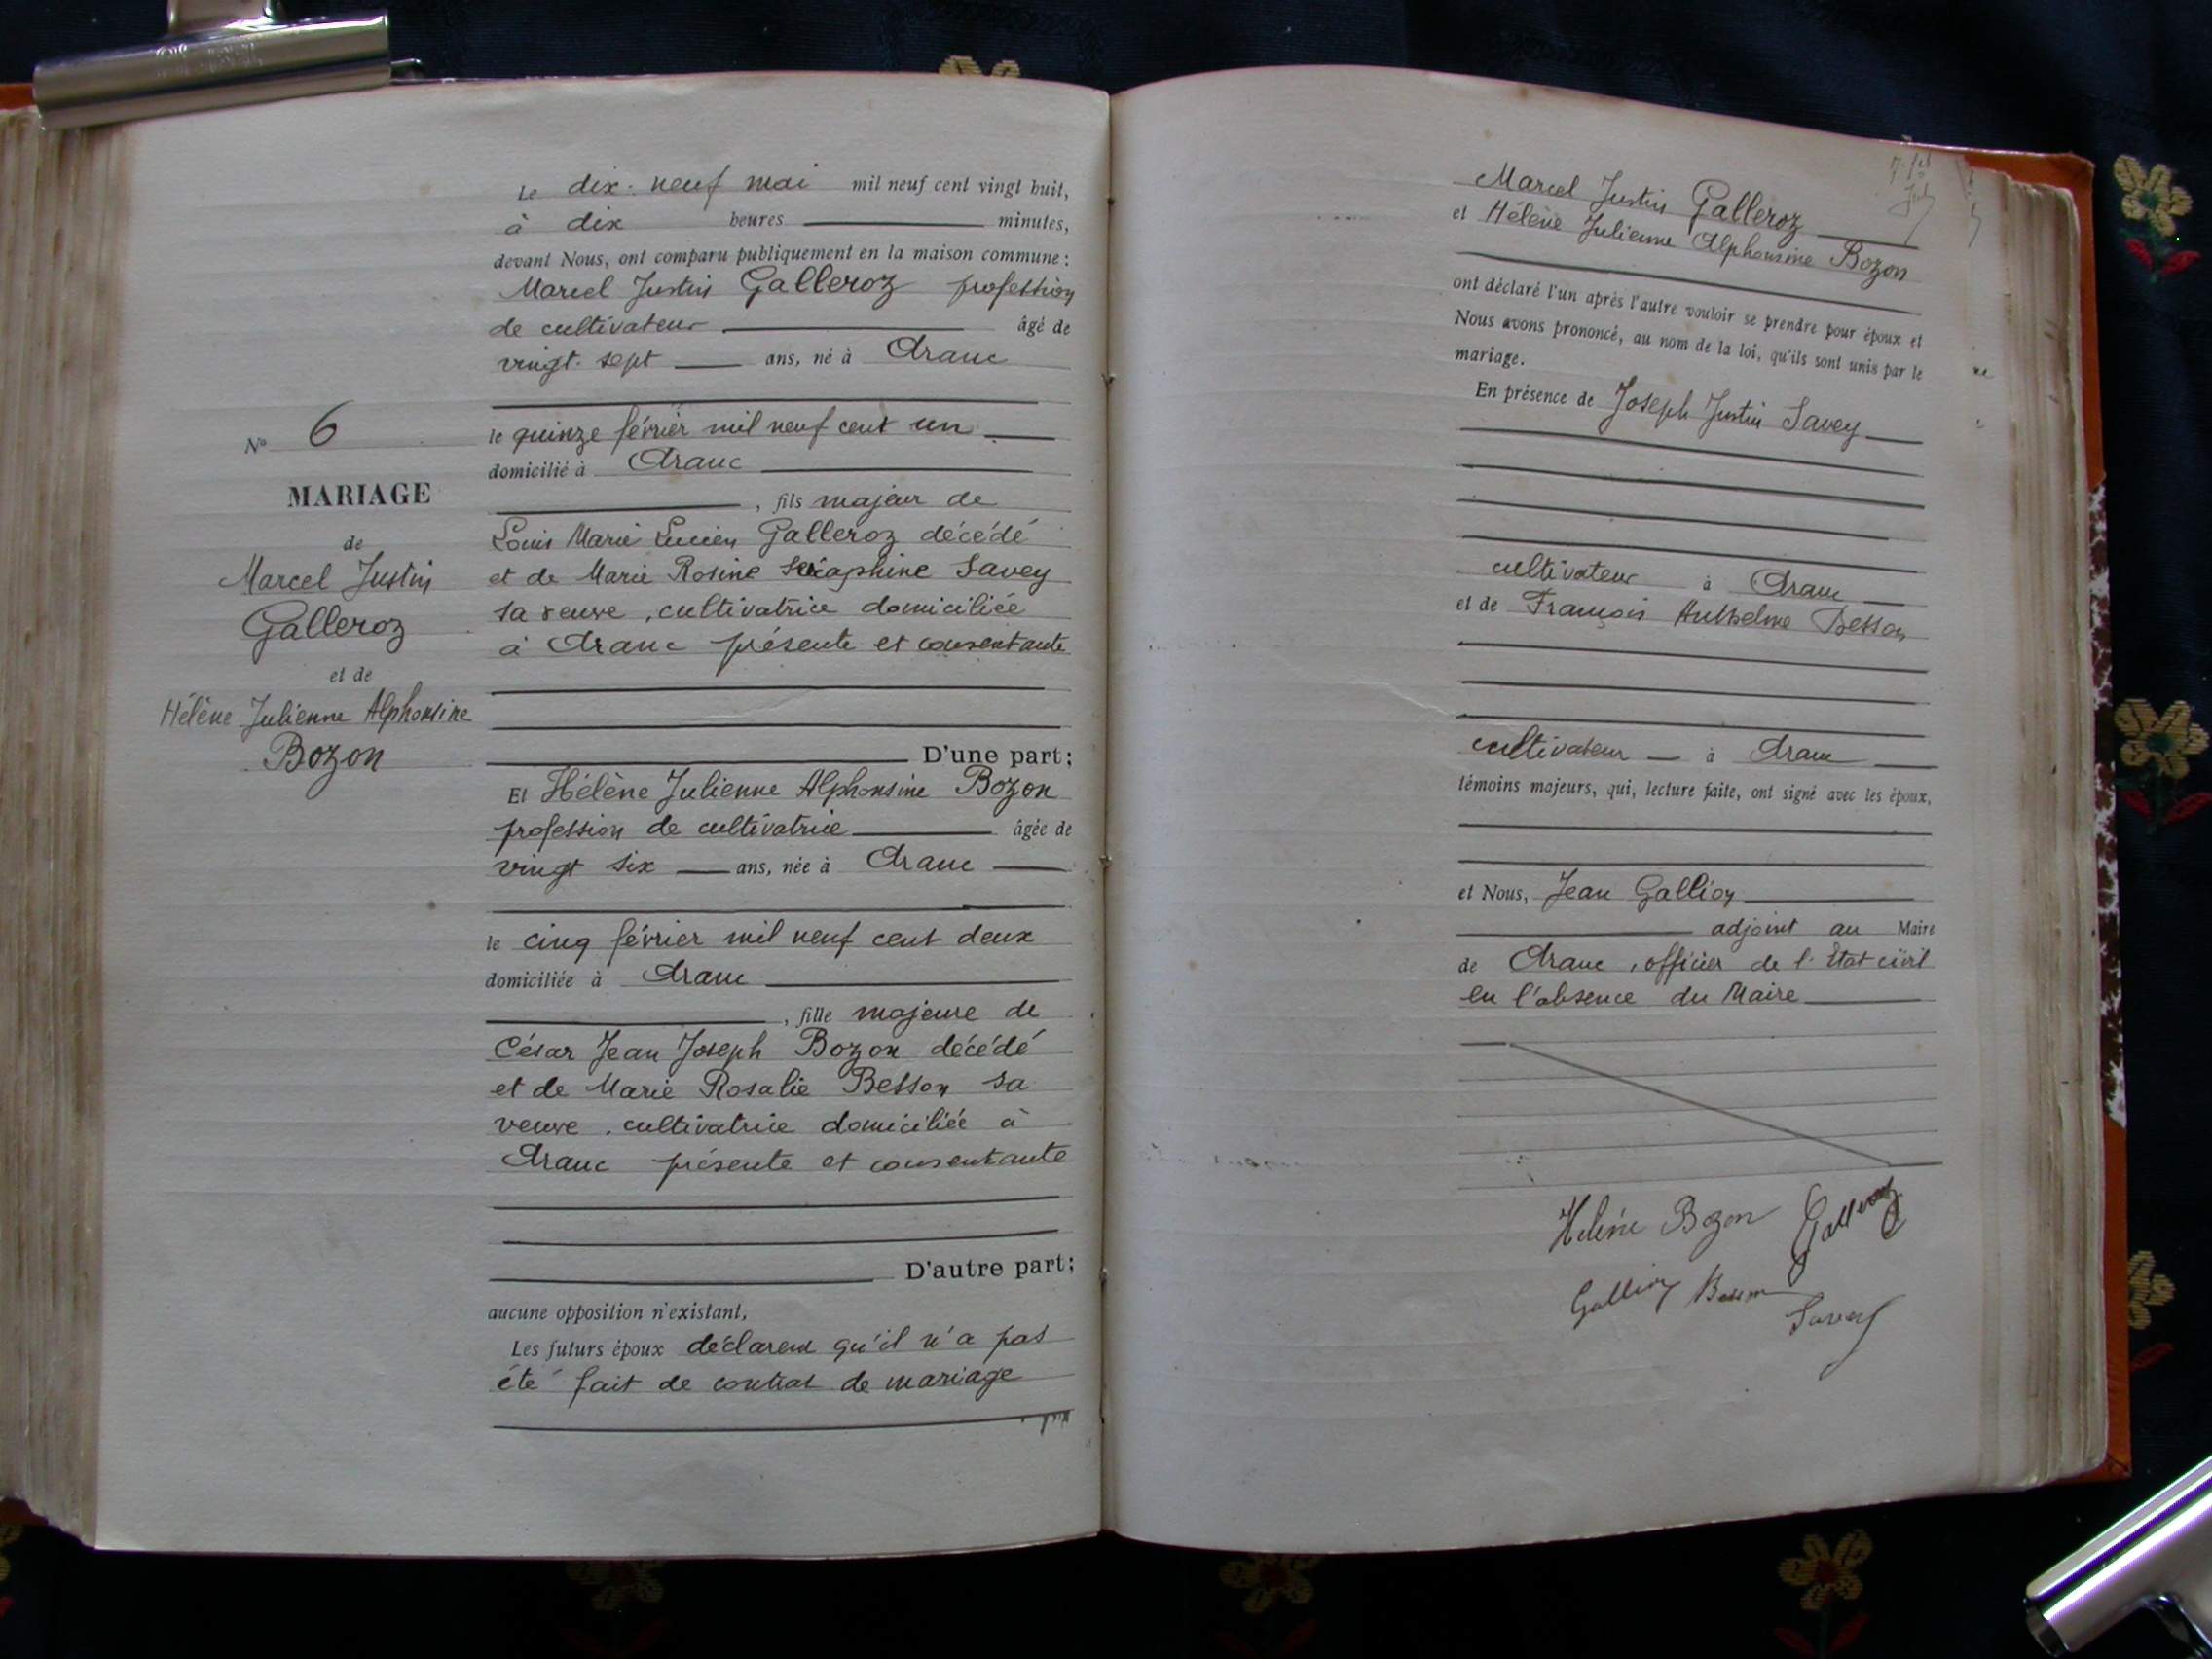 Nº 6
MARIAGE
de
Marcel Justin
Galleroz
et de
Hélène Julienne Alphonsine
Bozon
Le dix-neuf mai mil neuf cent vingt huit,
à dix heures minutes,
devant Nous, ont comparu publiquement en la maison commune :
Marcel Justin Galleroz profession
de cultivateur âgé de
vingt-sept ans, né à Aranc
le quinze février mil neuf cent un
domicilié à Aranc
, fils majeur de
Louis Marie Lucien Galleroz décédé
et de Marie Rosine Séraphine Savey
sa veuve, cultivatrice domiciliée
à Aranc présente et consentante
D'une part ;
Et Hélène Julienne Alphonsine Bozon
profession de cultivatrice âgée de
vingt six ans, née à Aranc
le cinq février mil neuf cent deux
domiciliée à Aranc
, fille majeure de
César Jean Joseph Bozon décédé
et de Marie Rosalie Besson sa
veuve, cultivatrice domiciliée à
Aranc présente et consentante
D'autre part ;
aucune opposition n'existant,
Les futurs époux déclarent qu'il n'a pas
été fait de contrat de mariage
Marcel Justin Galleroz
et Hélène Julienne Alphonsine Bozon
ont déclaré l'un après l'autre vouloir se prendre pour époux et
Nous avons prononcé, au nom de la loi, qu'ils sont unis par le
mariage.
En présence de Joseph Justin Savey
cultivateur à Aranc
et de François Anthelme Besson
cultivateur à Aranc
témoins majeurs, qui, lecture faite, ont signé avec les époux,
et Nous, Jean Gallioz
adjoint au Maire
de Aranc, officier de l'Etat civil
en l'absence du Maire
Hélène Bozon Galleroz
Gallioz Besson
Savey